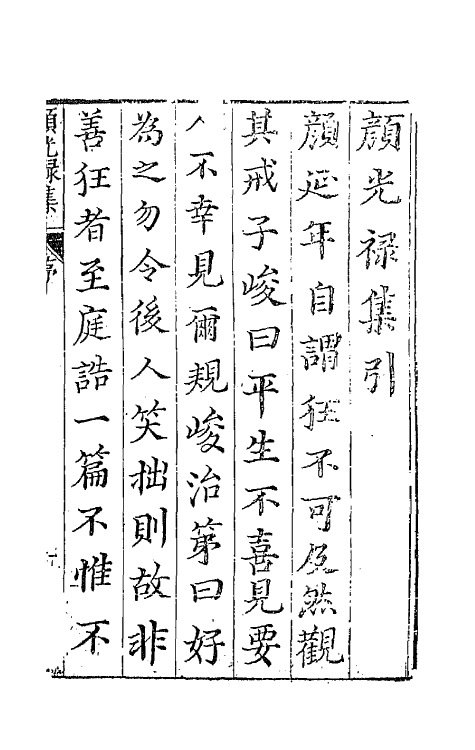 顏光禄集引
顏延年自謂狂不可及然觀
其戒子峻曰平生不喜見要
人不幸見爾規峻治第曰好
為之勿令後人笑拙則故非
善狂者至庭誥一篇不惟不
顏光禄集 序